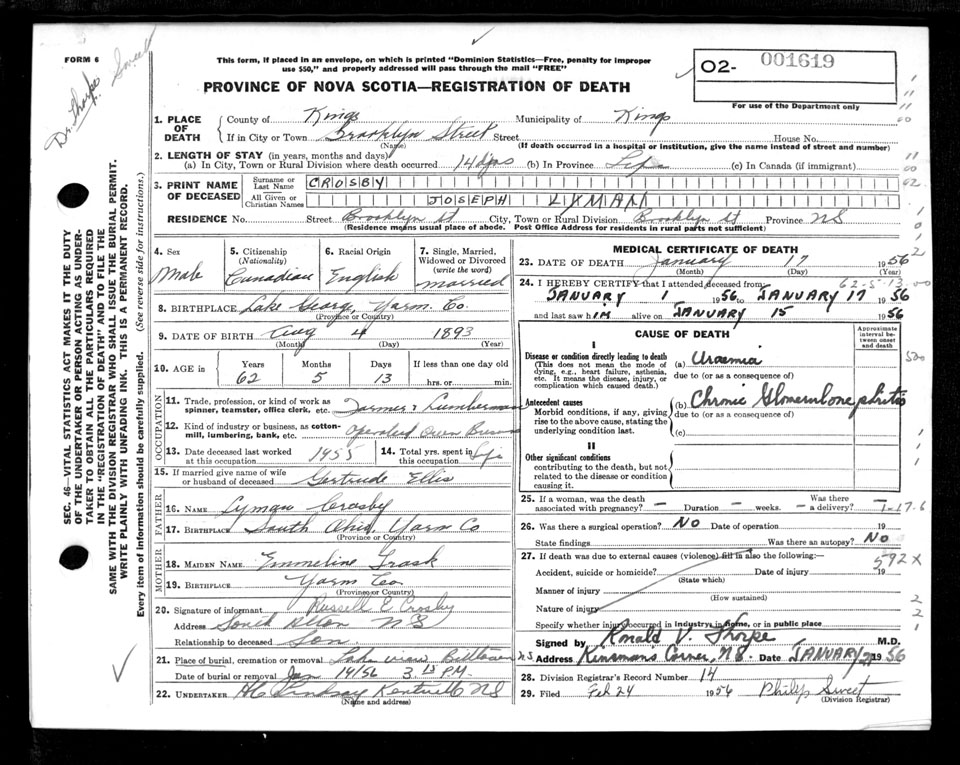 FORM 6
Dr. Thorpe
Sweet
This form, if placed in an envelope, on which is printed "Dominion Statistics—Free, penalty for improper
use $50," and properly addressed will pass through the mail "FREE"
PROVINCE OF NOVA SCOTIA—REGISTRATION OF DEATH
02- 001619
For use of the Department only
1. PLACE OF DEATH
County of Kings Municipality of Kings
If in City or Town Brooklyn Street Street House No.
(Name) (If death occurred in a hospital or institution, give the name instead of street and number)
2. LENGTH OF STAY (in years, months and days)
(a) In City, Town or Rural Division where death occurred 14 (b) In Province (c) In Canada (if immigrant)
3. PRINT NAME OF DECEASED
Surname or Last Name CROSBY
All Given or Christian Names JOSEPH LYMAN
RESIDENCE No. Street Brooklyn St City, Town or Rural Division Brooklyn St Province NS
(Residence means usual place of abode. Post Office Address for residents in rural parts not sufficient)
4. Sex
Male
5. Citizenship
(Nationality)
Canadian
6. Racial Origin
English
7. Single, Married,
Widowed or Divorced
(write the word)
married
8. BIRTHPLACE Lake George, Yarm. Co.
(Province or Country)
9. DATE OF BIRTH Aug 4 1893
(Month) (Day) (Year)
10. AGE in
Years Months Days If less than one day old
62 5 13 hrs. or min.
OCCUPATION
11. Trade, profession, or kind of work as
spinner, teamster, office clerk, etc. Farmer & Lumberman
12. Kind of industry or business, as cotton-
mill, lumbering, bank, etc. Operated Own
13. Date deceased last worked
at this occupation 1955
14. Total yrs. spent in
this occupation
15. If married give name of wife
or husband of deceased Gertrude Ellis
FATHER
16. NAME Lyman Crosby
17. BIRTHPLACE South Ohio, Yarm Co
(Province or Country)
MOTHER
18. MAIDEN NAME Emmeline Trask
19. BIRTHPLACE Yarm Co
(Province or Country)
20. Signature of informant Russell E Crosby
Address NS
Relationship to deceased Son
21. Place of burial, cremation or removal Lake view
Date of burial or removal Jan 19/56 3 P.M.
22. UNDERTAKER Lindsay Kentville NS
(Name and address)
MEDICAL CERTIFICATE OF DEATH
23. DATE OF DEATH January 17 1956
(Month) (Day) (Year)
62-5-13
24. I HEREBY CERTIFY that I attended deceased from
JANUARY 1 1956 to JANUARY 17 1956
and last saw him alive on JANUARY 15 1956
CAUSE OF DEATH
Approximate
interval between
onset and death
I
Disease or condition directly leading to death
(This does not mean the mode of
dying, e.g., heart failure, asthenia,
etc. It means the disease, injury, or
complication which caused death.)
(a) Uraemia
due to (or as a consequence of)
Antecedent causes
Morbid conditions, if any, giving
rise to the above cause, stating the
underlying condition last.
(b) Chronic Glomerulonephritis
due to (or as a consequence of)
(c)
II
Other significant conditions
contributing to the death, but not
related to the disease or condition
causing it.
25. If a woman, was the death
associated with pregnancy? — Duration — weeks. Was there
— a delivery? —
1-17-6
26. Was there a surgical operation? No Date of operation 19
State findings Was there an autopsy? No
27. If death was due to external causes (violence) fill in also the following:—
592X
Accident, suicide or homicide? Date of injury 19
(State which)
Manner of injury
(How sustained)
Nature of injury
Specify whether injury occurred in industry, in home, or in public place
Signed by Ronald V. Thorpe M.D.
Address Kinsmans Corner, N.S. Date JANUARY 1956
28. Division Registrar's Record Number 14
29. Filed Feb 24 1956 Philip Sweet
(Division Registrar)
SEC. 46—VITAL STATISTICS ACT MAKES IT THE DUTY
OF THE UNDERTAKER OR PERSON ACTING AS UNDER-
TAKER TO OBTAIN ALL THE PARTICULARS REQUIRED
IN THE "REGISTRATION OF DEATH" AND TO FILE THE
SAME WITH THE DIVISION REGISTRAR WHO SHALL ISSUE THE BURIAL PERMIT.
WRITE PLAINLY WITH UNFADING INK. THIS IS A PERMANENT RECORD.
Every item of information should be carefully supplied. (See reverse side for instructions.)